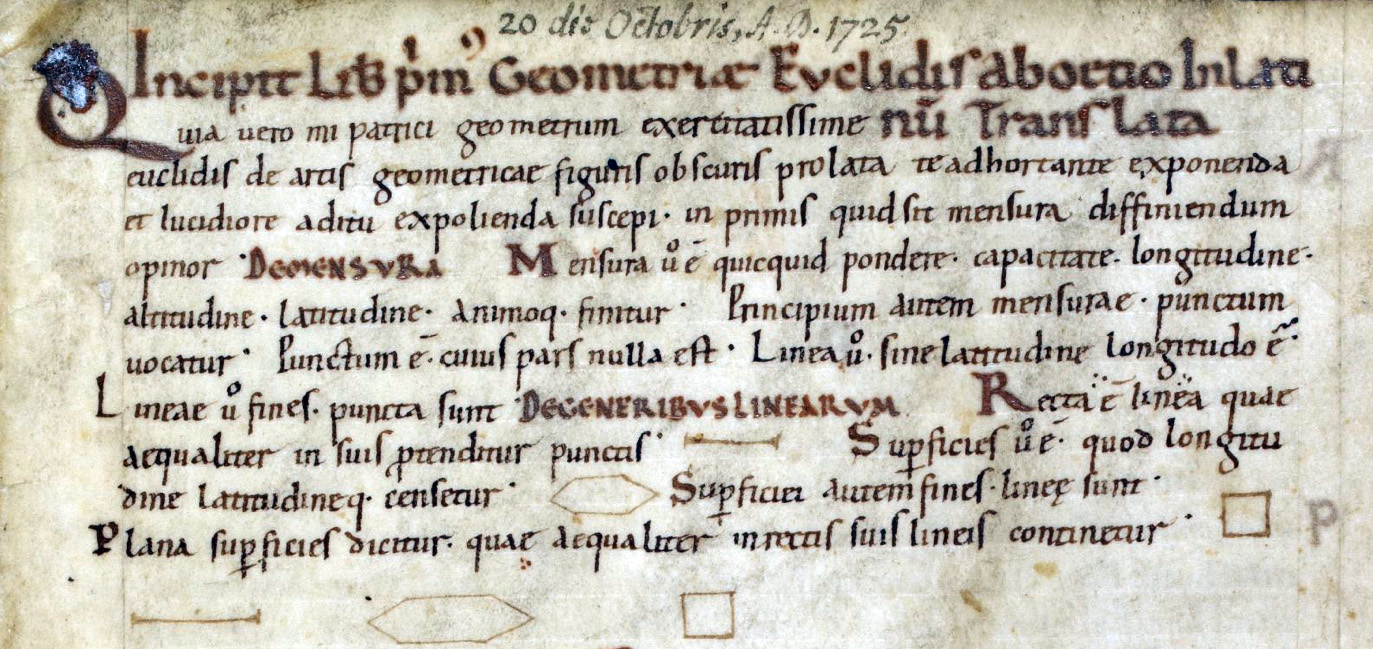 20 die Octobris, A. D. 1725
Incipit Lib prim' Geometriæ Evclidis aboetio In lati
nū Translata
Quia uero mi patrici geometrum exercitatissime
euclidis de artis geometricae figuris obscuris prolata te adhortante exponenda
et lucidiore aditu expolienda suscepi· in primis quid sit mensura diffiniendum
opinor· DE MENSVRA Mensura uͦ ē quicquid pondere· capacitate· longitudine·
altitudine· latitudine· Animoq· finitur· Principium autem mensurae· punctum
uocatur· Punctum ē· cuius pars nulla est· Linea uͦ· sine latitudine longitudo ē·
Lineae uͦ fines· puncta sunt· DE GENERIBVS LINEARVM Recta ē linea quae
aequaliter in suis ꝓtenditur punctis· Suꝑficies uͦ ē· quod longitu
dine latitudineq· censetur· Suꝑficiei autem fines· lineę sunt·
Plana suꝑficies dicitur· quae aequaliter in rectis suis lineis continetur·
R
P